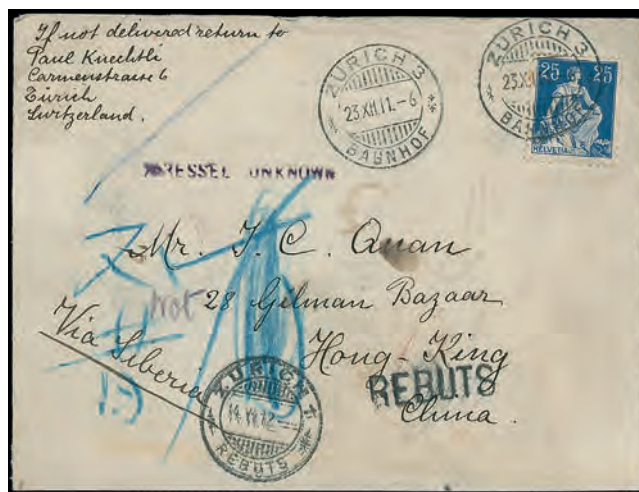 If not delivered return to
Paul Knechtli
Carmenstrasse 6
Zürich
Switzerland.
ZÜRICH 3
23.XII.11.-6
BAHNHOF
ZÜRICH 3
23.XII
BAHNHOF
25 25
HELVETIA
UNKNOWN
Mr. J. C. Quan
Not
28 Gilman Bazaar
Via Siberia
Hong-King
China.
REBUTS
ZÜRICH 1
REBUTS